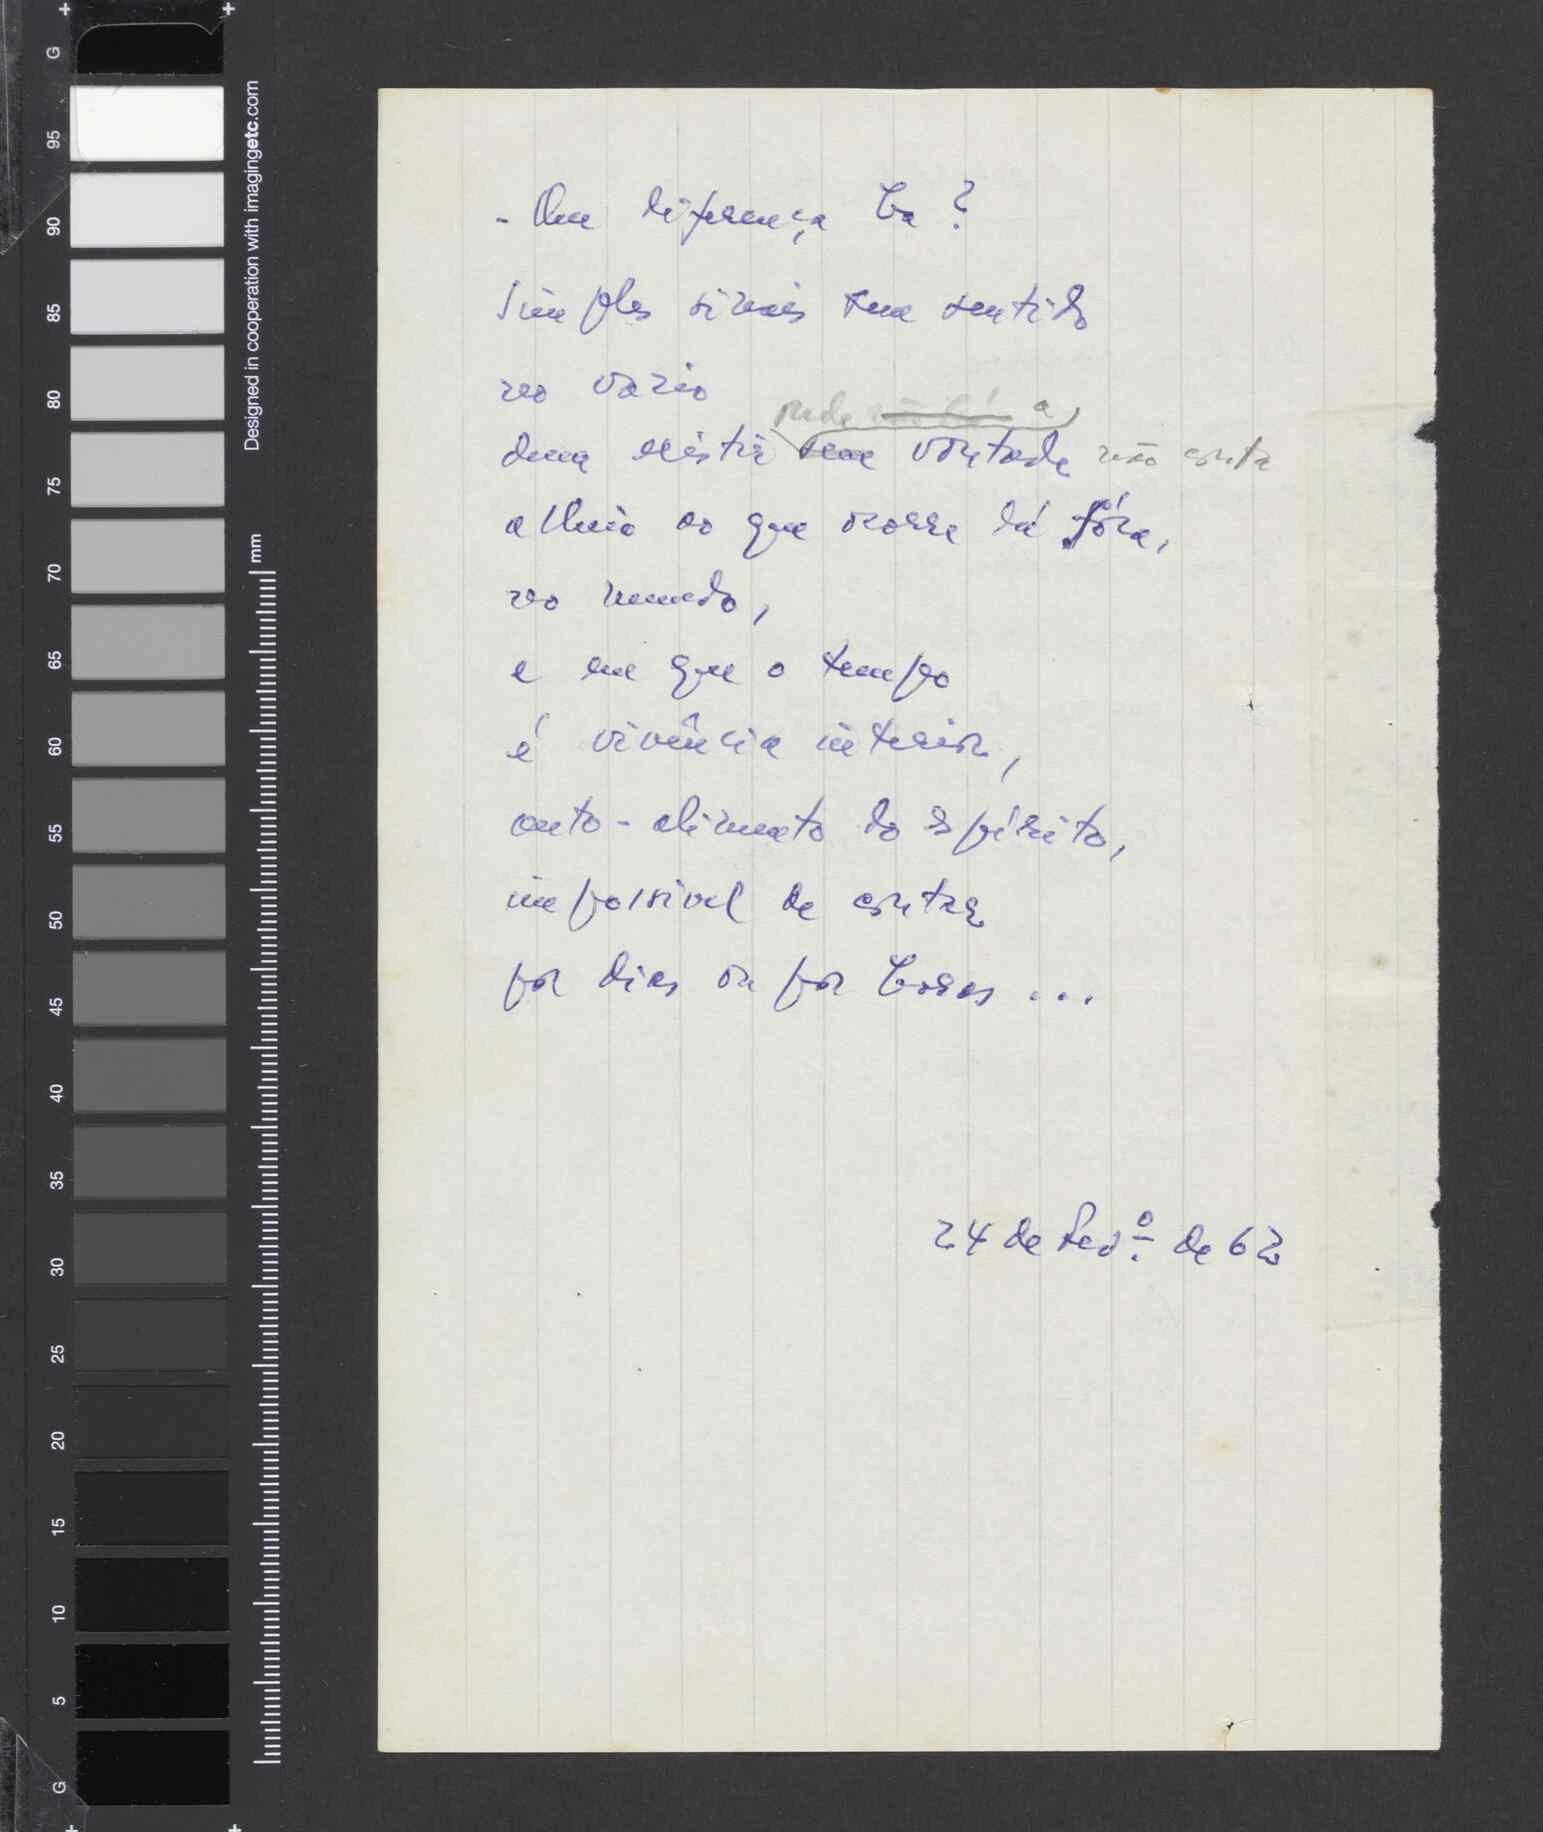 - Que diferença há?
Simples sinais sem sentido
no vazio
onde a
dum existir sem vontade não conta
alheio ao que ocorre lá fóra,
no mundo,
e em que o tempo
é vivência interior,
auto-alimento do espírito,
impossivel de contar
por dias ou por horas ...
24 de Fevº de 62
Designed in cooperation with imagingetc.com
mm
G
95
90
85
80
75
70
65
60
55
50
45
40
35
30
25
20
15
10
5
G